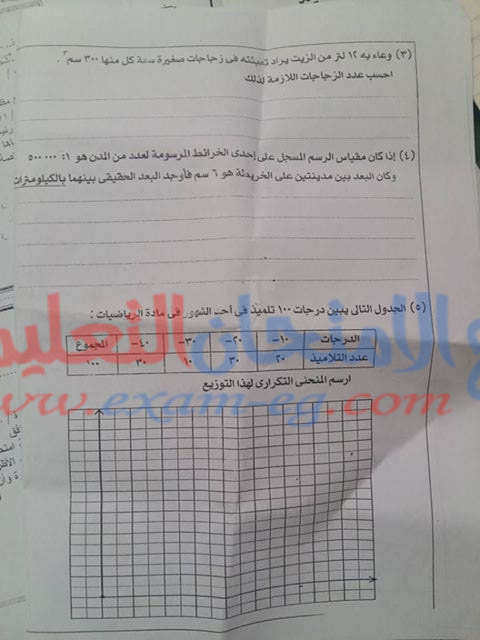 (٣) وعاء به ١٢ لتر من الزيت يراد تعبئته فى زجاجات صغيرة سعة كل منها ٣٠٠ سم٣.
احسب عدد الزجاجات اللازمة لذلك
(٤) إذا كان مقياس الرسم المسجل على إحدى الخرائط المرسومة لعدد من المدن هو ١: ٥٠٠٠٠٠
وكان البعد بين مدينتين على الخريطة هو ٦ سم فأوجد البعد الحقيقى بينهما بالكيلومترات
(٥) الجدول التالى يبين درجات ١٠٠ تلميذ فى أحد الشهور فى مادة الرياضيات :
الدرجات ١٠- ٢٠- ٣٠- ٤٠- المجموع
عدد التلاميذ ٢٠ ٣٠ ١٠ ٣٠ ١٠٠
ارسم المنحنى التكرارى لهذا التوزيع
الامتحان التعليمى
www.exam-eg.com